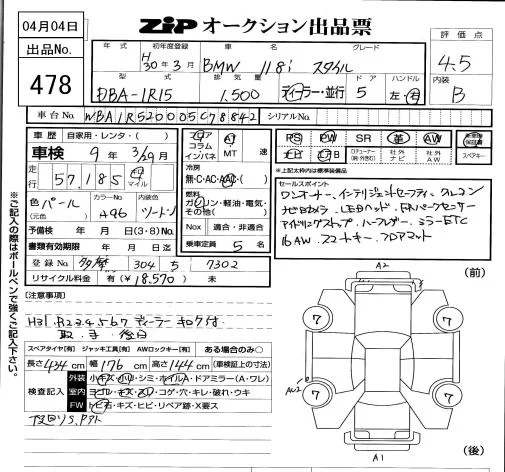 04月04日
出品No.
478
ZIP オークション出品票
評価点
4.5
内装
B
年式 初年度登録 車名 グレード
H30年3月 BMW 118i スタイル
型式 排気量 ドア ハンドル
DBA-1R15 1.500 ディーラー・並行 5 左・右
車台No. WBA1R520005C78842 シリアルNo.
車歴 自家用・レンタ・( )
車検 9年3/29月
走行 57,185 キロ マイル
色 パール (元色) カラーNo. A96 内装色 ツートン
予備検 年 月 日(3・8)No.
書類有効期限 年 月 日迄
登録No. 多摩 304 ち 7302
リサイクル料金 有(¥18,570) 未
フロア コラム インパネ AT MT 速
冷房 無・C・AC・AAC・( )
燃料 ガソリン・軽油・電気・その他( )
Nox 適合・非適合
乗車定員 5 名
PS PW SR 革 AW
ナビ TV 社外ナビ 社外AW
新車時保証書 スペアキー
※上記太枠内は装備品
セールスポイント
ワンオーナー、インテリジェントセーフティ、クルコン
ナビBカメラ LEDヘッド F.Rパークセンサー
アイドリングストップ、ハーフレザー、ミラーETC
16AW スマートキー、フロアマット
※ご記入の際はボールペンで強くご記入下さい。
[注意事項]
H31.R2.3.4.5.6.7 ディーラーキロク付
取.予 後日
スペアタイヤ[有] ジャッキ工具[有] AWロックキー[有] ある場合のみ○
長さ434cm 幅176cm 高さ144cm (車検証上の寸法)
検査記入
外装 小キズ・小凹・シミ・ホイルA・ドアミラー(A・ワレ)
室内 ヨゴレ・キズ・スレ・コゲ・穴・キレ・破れ・ウキ
FW トビ石・キズ・ヒビ・リペア跡・X要ス
下回りS.アト
A2
(前)
7 7
AU2
7 7
A1
(後)